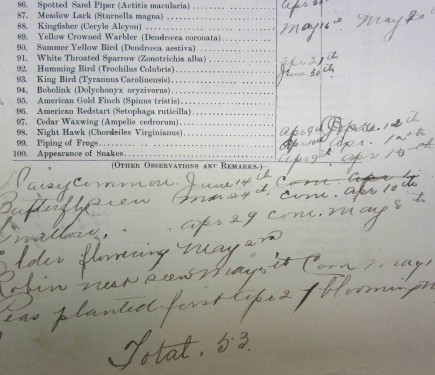 86. Spotted Sand Piper (Actitis macularia)
87. Meadow Lark (Sturnella magna)
88. Kingfisher (Ceryle Alcyon) May 20th
89. Yellow Crowned Warbler (Dendrœca coronata)
90. Summer Yellow Bird (Dendrœca aestiva)
91. White Throated Sparrow (Zonotrichia alba)
92. Humming Bird (Trochilus Colubris)
93. King Bird (Tyrannus Carolinensis)
94. Bobolink (Dolychonyx oryzivorus)
95. American Gold Finch (Spinus tristis)
96. American Redstart (Setophaga ruticilla)
97. Cedar Waxwing (Ampelis cedrorum)
98. Night Hawk (Chordeiles Virginianus)
99. Piping of Frogs Apr. 12th
100. Appearance of Snakes
(Other Observations and Remarks.)
Daisy common June 14th
Butterfly seen com. apr 10th
Swallow " apr 29 com. May 8th
Elder flowering May 2nd
Robin nest seen May
Peas planted first blooming
Total. 53.